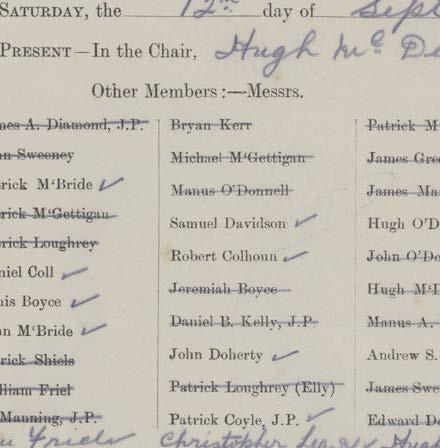 SATURDAY, the 12th day of Sept
PRESENT—In the Chair, Hugh Mc De
Other Members:—Messrs.
mes A. Diamond, J.P.
n Sweeney
rick M'Bride ✓
rick M'Gettigan
rick Loughrey
niel Coll ✓
nis Boyce ✓
n M'Bride ✓
rick Shiels
lliam Friel
Manning, J.P.
Bryan Kerr
Michael M'Gettigan
Manus O'Donnell
Samuel Davidson ✓
Robert Colhoun ✓
Jeremiah Boyce
Daniel B. Kelly, J.P.
John Doherty ✓
Patrick Loughrey (Elly)
Patrick Coyle, J.P. ✓
Patrick M
James Gre
James Ma
Hugh O'D
John O'Do
Hugh M'D
Manus A.
Andrew S.
James Swe
Edward D
Friels Christopher Hugh